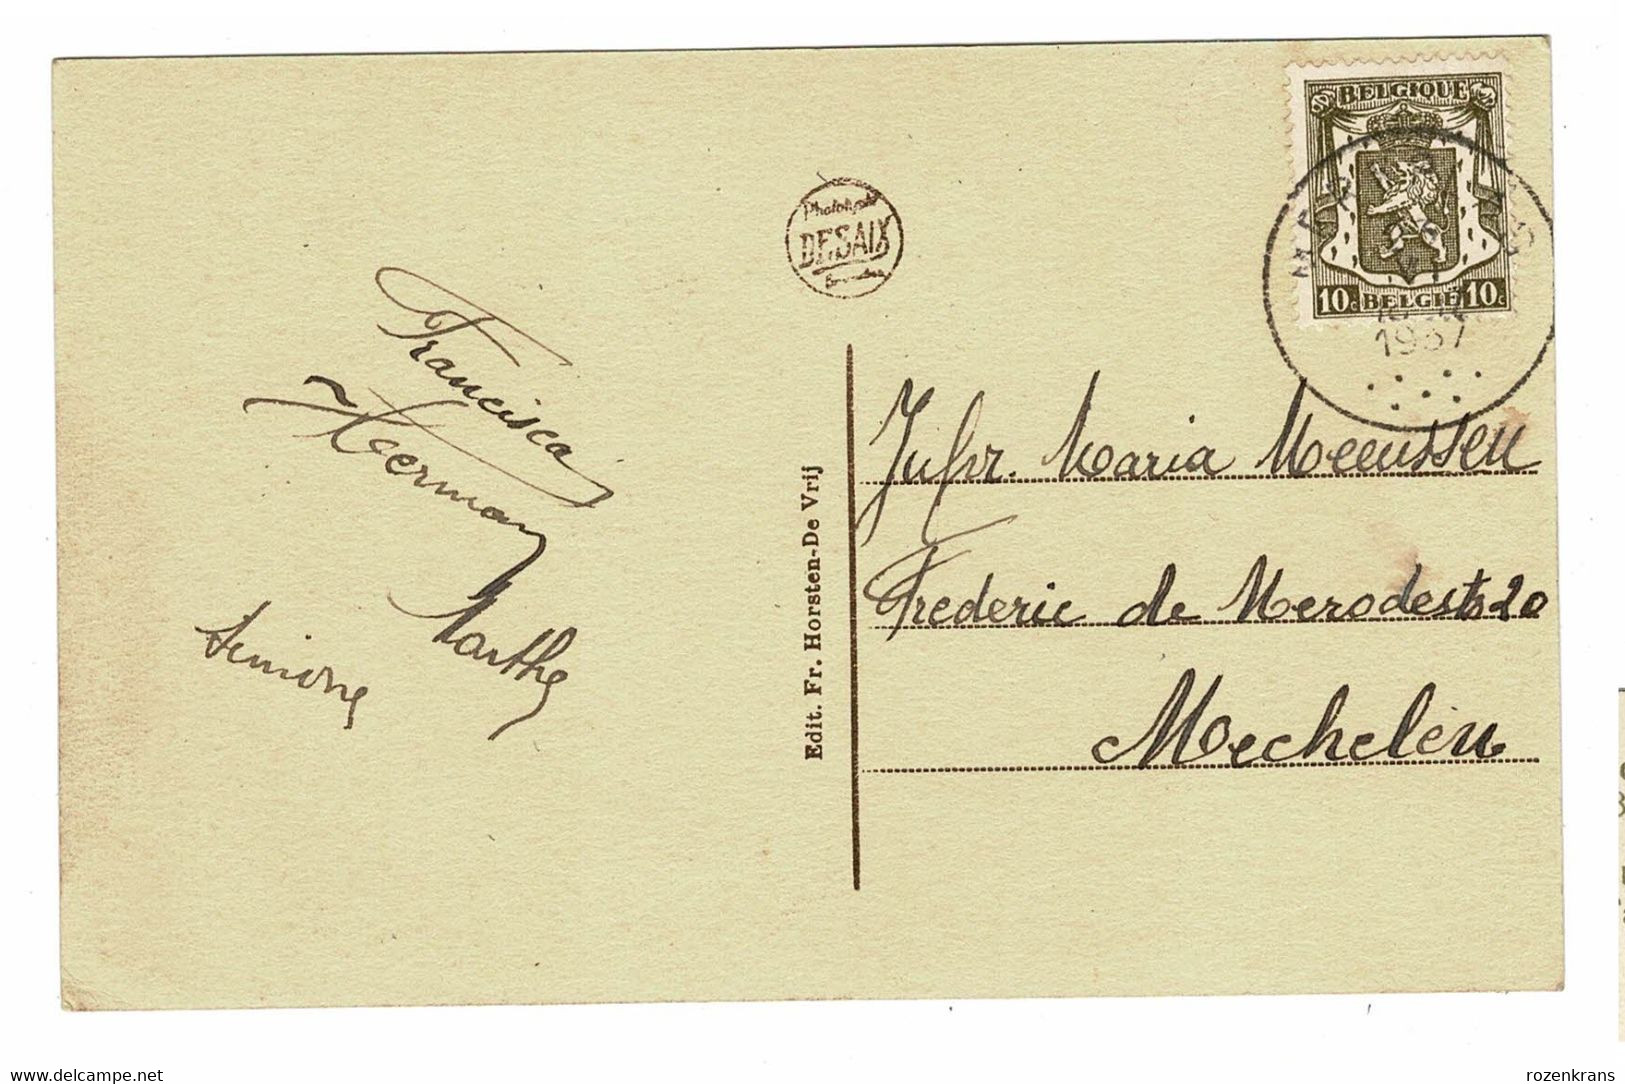 BELGIQUE
10c BELGIË 10c
1937
Phototypie
DESAIX
Francisca
Heerman
Marthe
Simone
Edit. Fr. Horsten-De Vrij
Jufr. Maria Meeussen
Frederic de Merodestr 20
Mechelen
www.delcampe.net
rozenkrans